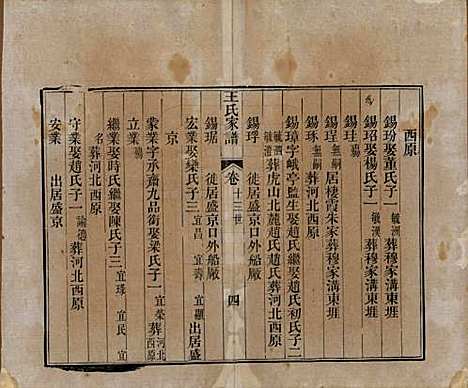 西原
錫玢娶董氏子一毓漢葬穆家溝東堐
錫玿娶楊氏子一毓渶葬穆家溝東堐
錫玤殤
錫珵無嗣居棲霞朱家葬穆家溝東堐
錫琜無嗣葬河北西原
錫璋字峨亭監生娶趙氏繼娶趙氏初氏子二
葬虎山北麓趙氏趙氏葬河北西原
錫琈徙居盛京口外船廠
王氏家譜 卷 十三世 四
錫琚 徙居盛京口外船廠
宏業娶欒氏子三宜昌 宜壽 宜觀出居盛
京
蒙業字承齋九品銜娶梁氏子一宜榮葬河北西原
立業
繼業娶時氏繼娶陳氏子三宜琭 宜民 宜
名葬河北西原
守業娶趙氏子一諭港葬河北西原
安業 出居盛京